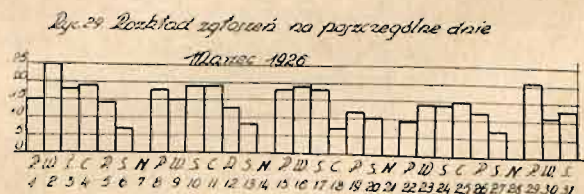 Ryc. 29 Rozkład zgłoszeń na poszczególne dnie
Marzec 1926
25
20
15
10
5
0
P W Ś C P S N P W S C P S N P W S C P S N P W S C P S N P W S
1 2 3 4 5 6 7 8 9 10 11 12 13 14 15 16 17 18 19 20 21 22 23 24 25 26 27 28 29 30 31